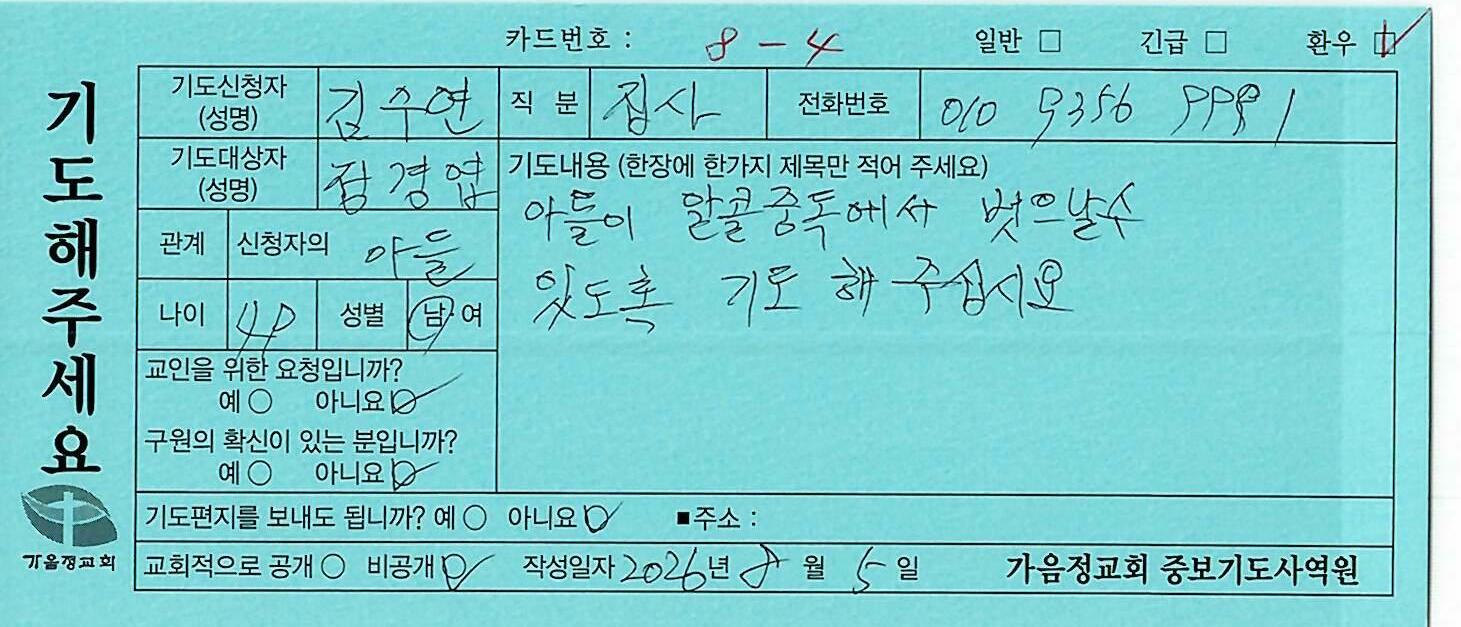 카드번호 : 8-4 일반 □ 긴급 □ 환우 ☑
기도해주세요
기도신청자 (성명) 김수연 직 분 집사 전화번호 010 9356 9981
기도대상자 (성명) 정경엽 기도내용 (한장에 한가지 제목만 적어 주세요)
아들이 알콜중독에서 벗으날수
관계 신청자의 아들
있도록 기도 해 주십시요
나이 40 성별 남·여
교인을 위한 요청입니까?
예 ○ 아니요 ☑
구원의 확신이 있는 분입니까?
예 ○ 아니요 ☑
기도편지를 보내도 됩니까? 예 ○ 아니요 ☑ ■주소 :
교회적으로 공개 ○ 비공개 ☑ 작성일자 2026년 8월 5일 가음정교회 중보기도사역원
가음정교회